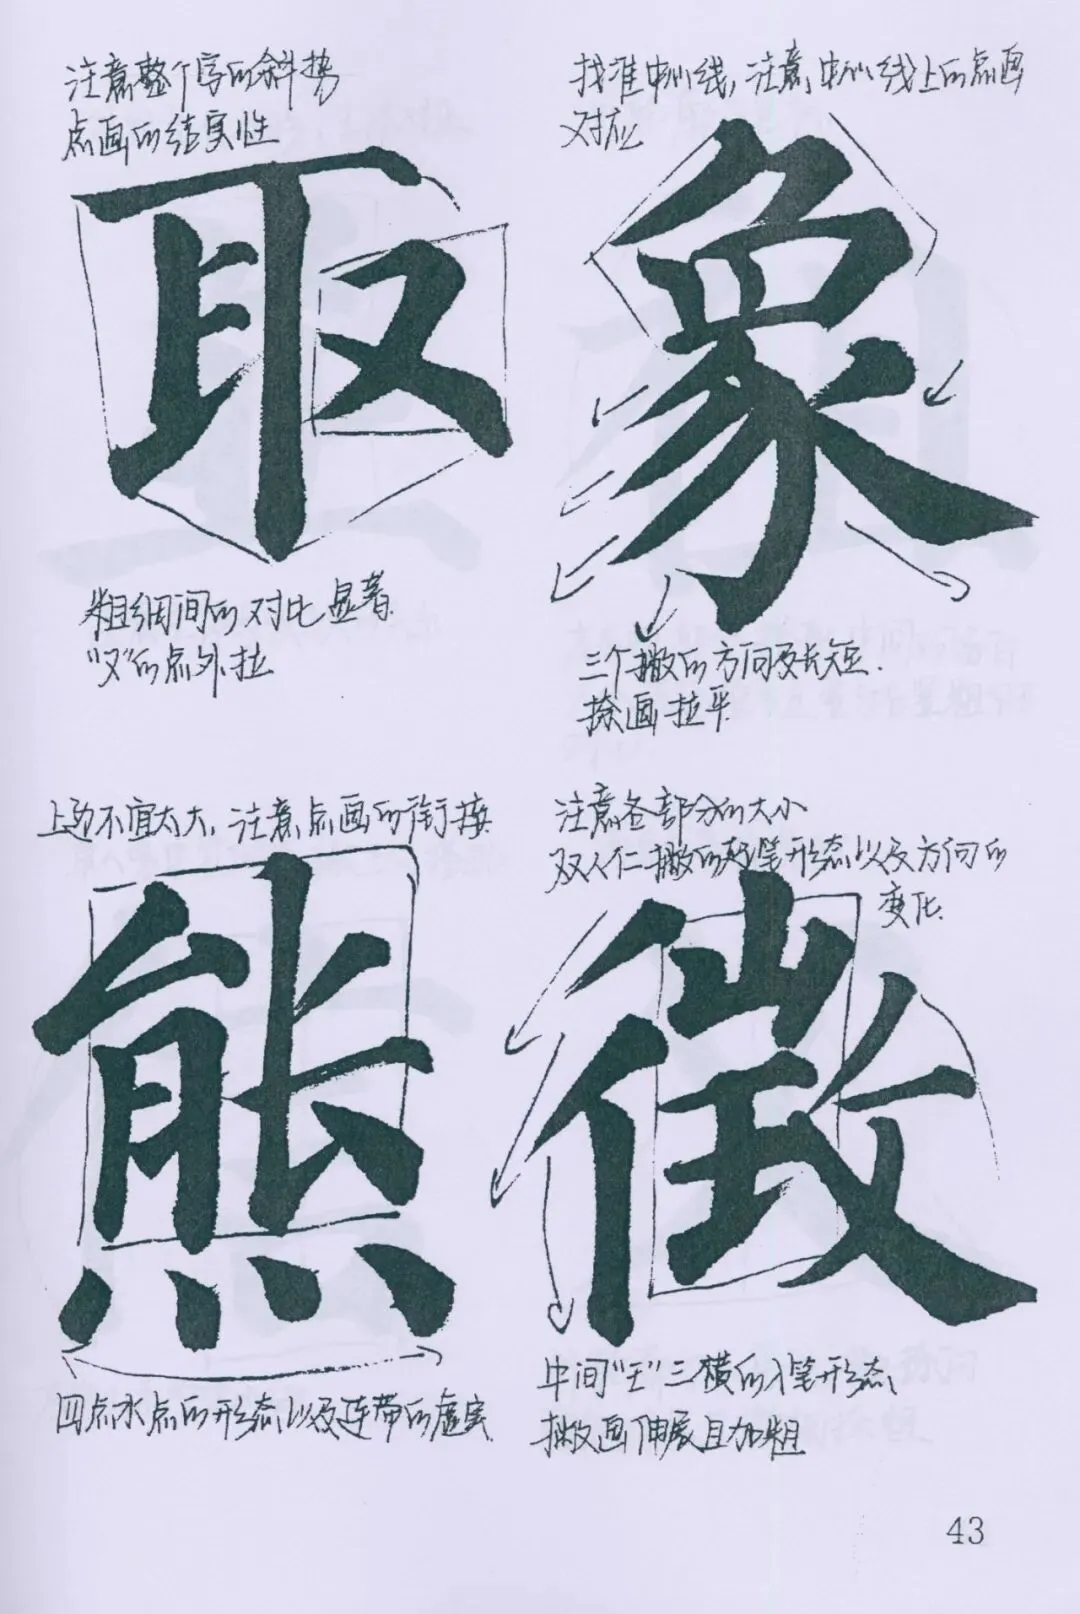 注意整个字的斜势
点画的结实性
取
粗细间的对比显著.
"又"的点外拉
找准中心线,注意中心线上的点画
对应
象
三个撇的方向及长短.
捺画拉平
上边不宜太大,注意点画的衔接
熊
四点水点的形态以及连带的虚实
注意各部分的大小
双人仁二撇的起笔形态以及方向的
变化.
徵
中间"王"三横的入笔形态
捺画伸展且加粗
43